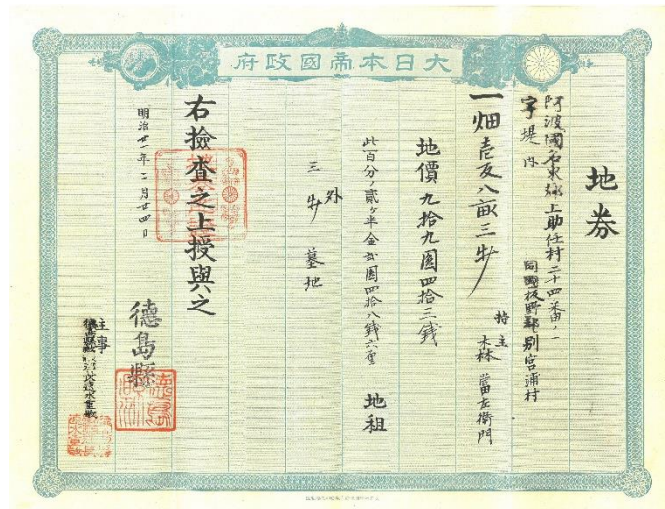 大日本帝國政府
地券
阿波國名東郡上助任村二十四番ノ一
字堤内
同國板野郡別宮浦村
一畑壱反八畝三歩
持主
地價九拾九圓四拾三錢
此百分ノ貳ヶ半金貳圓四拾八錢六厘
地租
外
三歩 墓地
右檢査之上授與之
明治廿一年二月廿四日
德島縣
主事